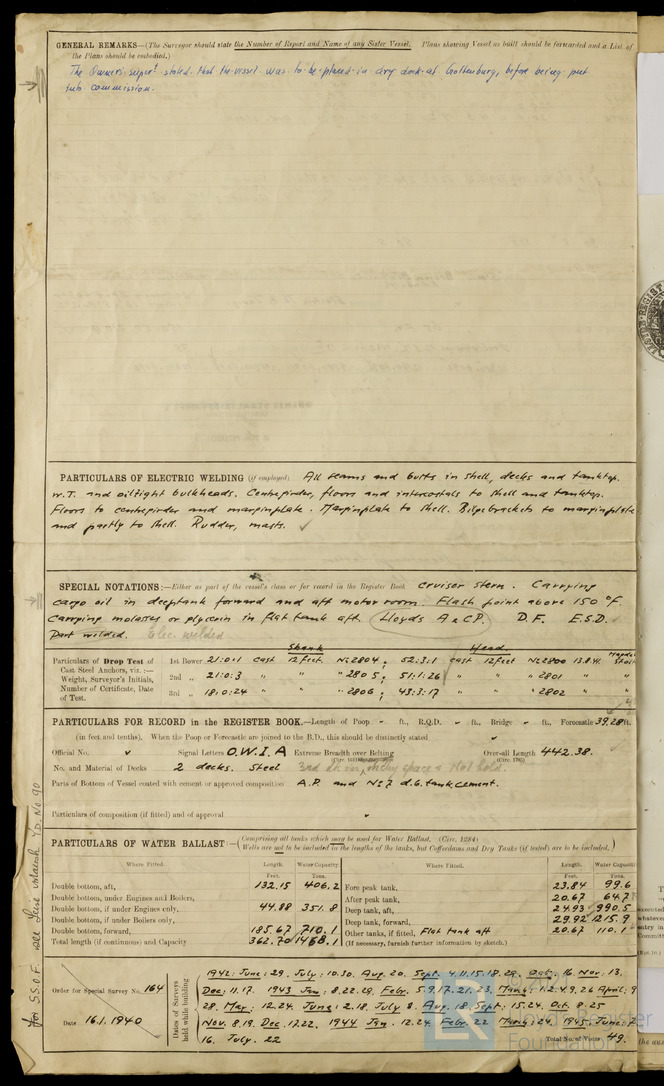 GENERAL REMARKS—(The Surveyor should state the Number of Report and Name of any Sister Vessel. Plans showing Vessel as built should be forwarded and a List of
the Plans should be embodied.)
The Owners supt. stated that the vessel was to be placed in dry dock at Gothenburg, before being put
into commission.
PARTICULARS OF ELECTRIC WELDING (if employed) All seams and butts in shell, decks and tanktop.
W.T. and oiltight bulkheads. Centregirder, floors and intercostals to shell and tanktop.
Floors to centregirder and marginplate. Marginplate to shell. Bilgebrackets to marginplate
and partly to shell. Rudder, masts. ✓
SPECIAL NOTATIONS:—Either as part of the vessel's class or for record in the Register Book cruiser stern. Carrying
cargo oil in deeptank forward and aft motor room. Flash point above 150 °F.
Carrying molasses or glycerin in flat tank aft. Lloyds A & CP. D.F. E.S.D.
Part welded. Elec. welded
Shank Head
Particulars of Drop Test of
Cast Steel Anchors, viz.:—
Weight, Surveyor's Initials,
Number of Certificate, Date
of Test.
1st Bower 21:0:1 cast 12 feet No 2804; 52:3:1 cast 12 feet No 2800 13.8.41
2nd „ 21:0:3 „ „ „ 2805; 51:1:26 „ „ „ 2801 „
3rd „ 18:0:24 „ „ „ 2806; 43:3:17 „ „ „ 2802 „
PARTICULARS FOR RECORD in the REGISTER BOOK.—Length of Poop - ft., R.Q.D. - ft., Bridge - ft., Forecastle 39.28 ft.
(in feet and tenths). When the Poop or Forecastle are joined to the B.D., this should be distinctly stated
Official No. Signal Letters O.W.I.A Extreme Breadth over Belting Over-all Length 442.38.
(Circ. 1703)
No. and Material of Decks 2 decks. Steel 3rd dk in mchy space & No 1 hold.
Parts of Bottom of Vessel coated with cement or approved composition A.P. and No 7 d.b. tank, cement.
Particulars of composition (if fitted) and of approval
PARTICULARS OF WATER BALLAST:—(Comprising all tanks which may be used for Water Ballast. (Circ. 1284)
Wells are not to be included in the lengths of the tanks, but Cofferdams and Dry Tanks (if tested) are to be included.)
Where Fitted. Length. Water Capacity Where Fitted. Length. Water Capacity
Feet. Tons. Feet. Tons.
Double bottom, aft, 132.15 406.2 Fore peak tank, 23.84 99.6
Double bottom, under Engines and Boilers, After peak tank, 20.67 64.7
Double bottom, if under Engines only, 44.88 351.8 Deep tank, aft, 24.93 990.5
Double bottom, if under Boilers only, Deep tank, forward, 29.92 1215.9
Double bottom, forward, 185.67 710.1 Other tanks, if fitted, Flat tank aft 20.67 110.1
Total length (if continuous) and Capacity 362.70 1468.1 (If necessary, furnish further information by sketch.)
Order for Special Survey No. 164
Date 16.1.1940
Dates of Surveys held while building
1942: June: 29. July: 10.30. Aug. 20. Sept. 4.11.15.18.29. Oct. 16. Nov: 13.
Dec: 11.17. 1943 Jan: 8.22.29. Febr. 5.9.17.21.23. March: 1.2.4.9.26 April: 9
28. May: 12.24. June: 2.18. July 8. Aug. 18. Sept: 15.24. Oct. 8.25
Nov. 8.19. Dec. 17.22. 1944 Jan. 12.24. Febr. 22 March: 24. 1945: June: 7
16. July. 22
Total No. of Visits 49.
for S.S.O.F. see Yd. No 90
Lloyd's Register
Foundation